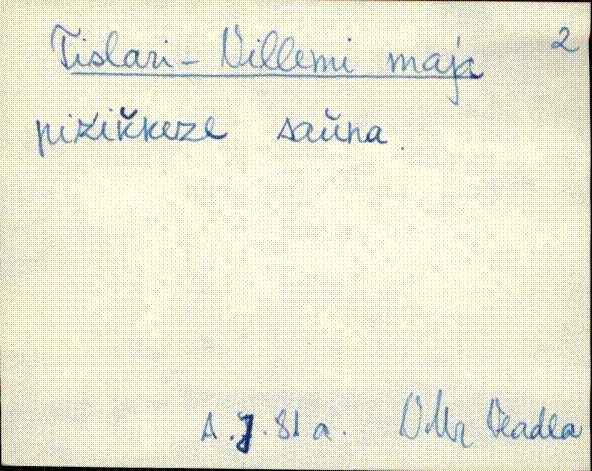 Tislari-Villemi maja 2
pizikkeze saŭna.
A.J. 81 a. VMr Veadla